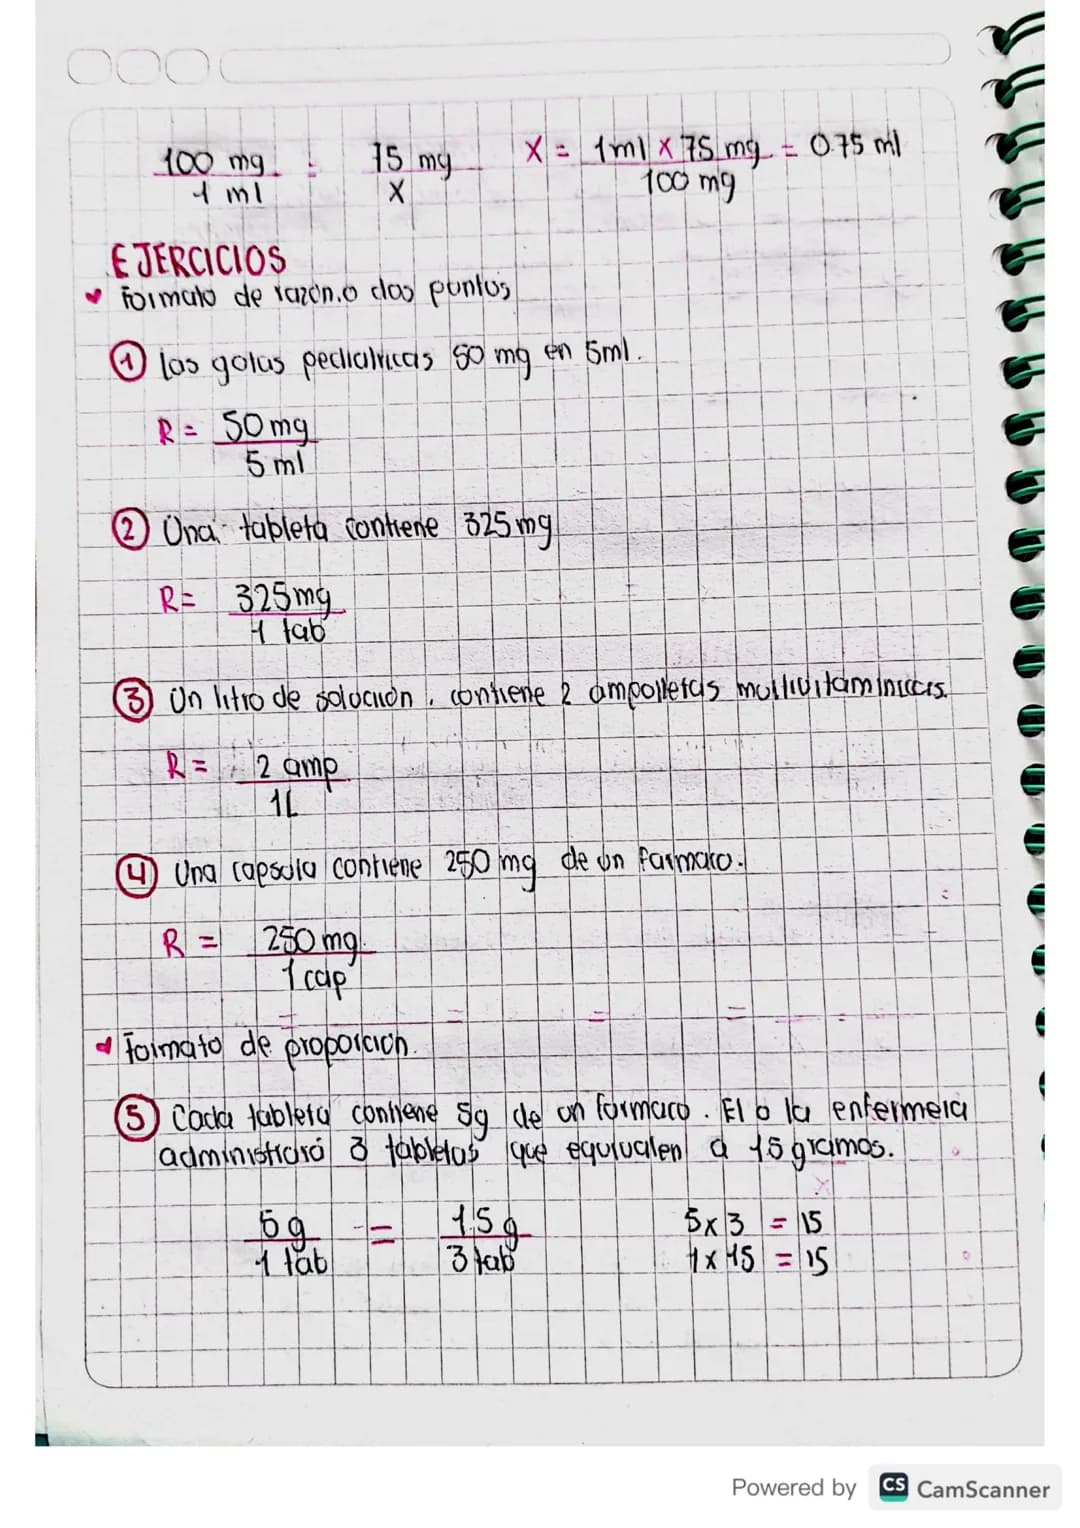 100 mg = 75 mg X = 1ml x 75 mg = 0.75 ml
1 ml X 100 mg
EJERCICIOS
Formato de razón o dos puntos
1 las gotas pediatricas 50 mg en 5ml.
R = 50 mg
5 ml
2 Una tableta contiene 325 mg
R = 325mg
1 tab
3 Un litro de solución, contiene 2 ampolletas multivitaminicas.
R = 2 amp
1L
4 Una capsula contiene 250 mg de un farmaco.
R = 250 mg.
1 cap
Formato de proporcion.
5 Cada tableta contiene 5g de un farmaco. El o la enfermera
administrará 3 tabletas que equivalen a 15 gramos.
5g = 15 g 5x3 = 15
1 tab 3 tab 1x15 = 15
Powered by CS CamScanner